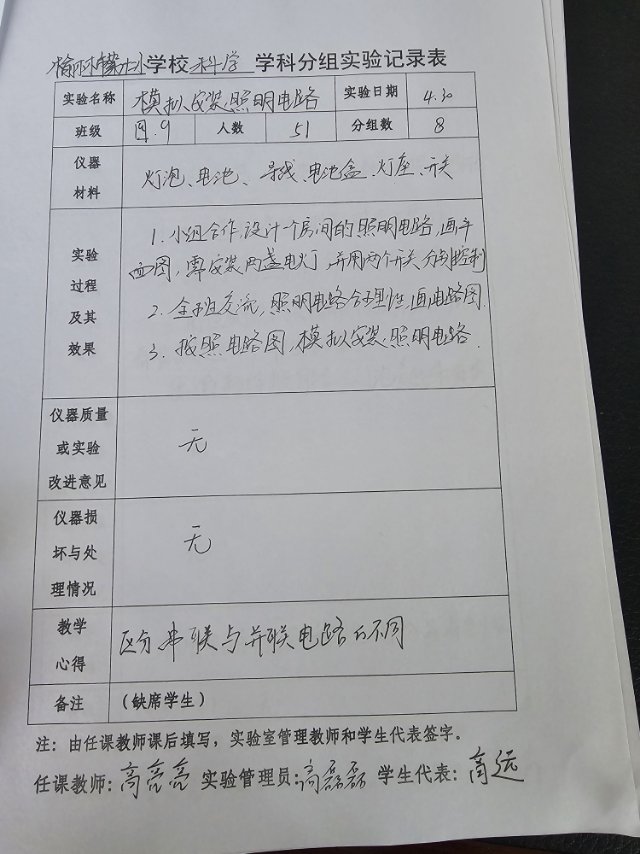 榆林 小学校科学 学科分组实验记录表
实验名称 模拟安装照明电路 实验日期 4.30
班级 四.9 人数 51 分组数 8
仪器
材料
灯泡、电池、导线、电池盒、灯座、开关
实验
过程
及其
效果
1. 小组合作,设计一个房间的照明电路,画平
面图,需安装两盏电灯,并用两个开关分别控制
2. 全班交流,照明电路合理性,画电路图.
3. 按照电路图,模拟安装照明电路.
仪器质量
或实验
改进意见
无
仪器损
坏与处
理情况
无
教学
心得
区分串联与并联电路的不同
备注 (缺席学生)
注:由任课教师课后填写,实验室管理教师和学生代表签字。
任课教师:高亮亮 实验管理员:高磊磊 学生代表:高远